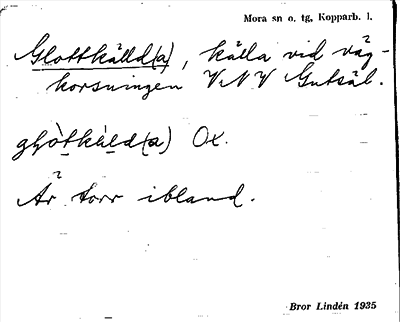 Mora sn o. tg, Kopparb. l.
Glottkälld(a), källa vid väg-
korsningen V.N.V Gutsäl.
glo̱tkäld(a) Ox.
Är torr ibland.
Bror Lindén 1935